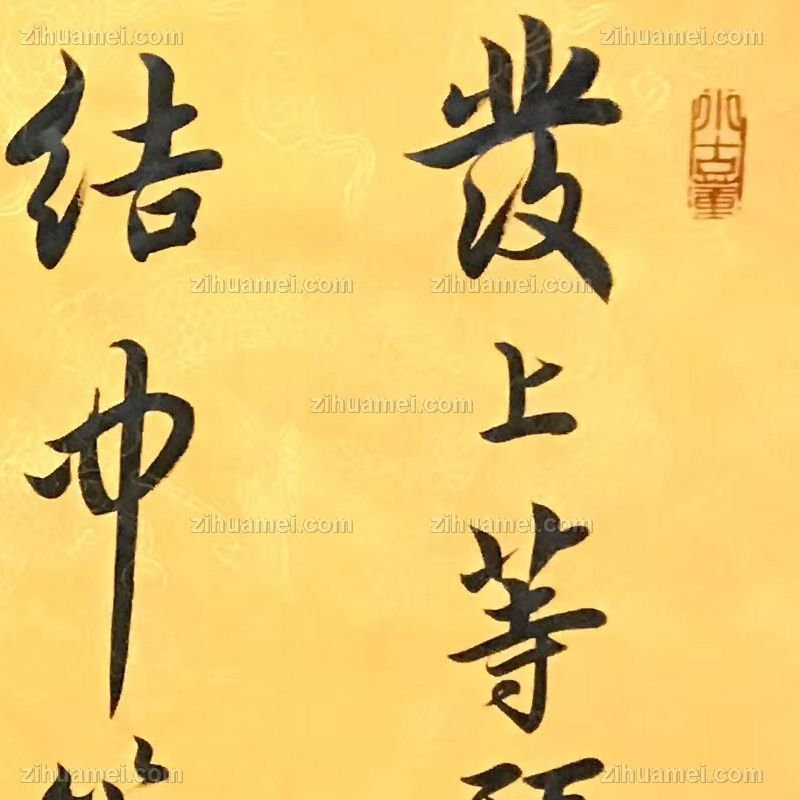 小古董
發上等
結中
zihuamei.com
zihuamei.com
zihuamei.com
zihuamei.com
zihuamei.com
zihuamei.com
zihuamei.com
zihuamei.com
zihuamei.com